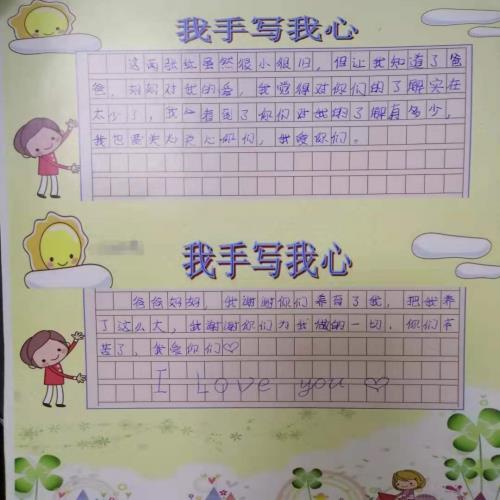 我手写我心
这两张纸虽然很小很旧，但让我知道了爸
爸，妈妈对我的爱，我觉得对你们的了解实在
太少了，我看到了你们对我的了解真多少，
我也要关心你们，我爱你们。
我手写我心
爸爸妈妈，我谢谢你们养育了我，把我养
了这么大，我谢谢你们为我做的一切，你们辛
苦了，我爱你们♡
I Love you ♡